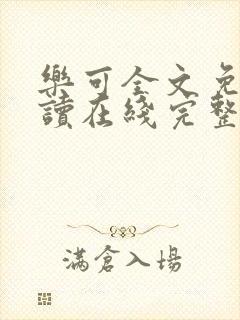 樂可全文免
讀在綫完整
滿倉入場